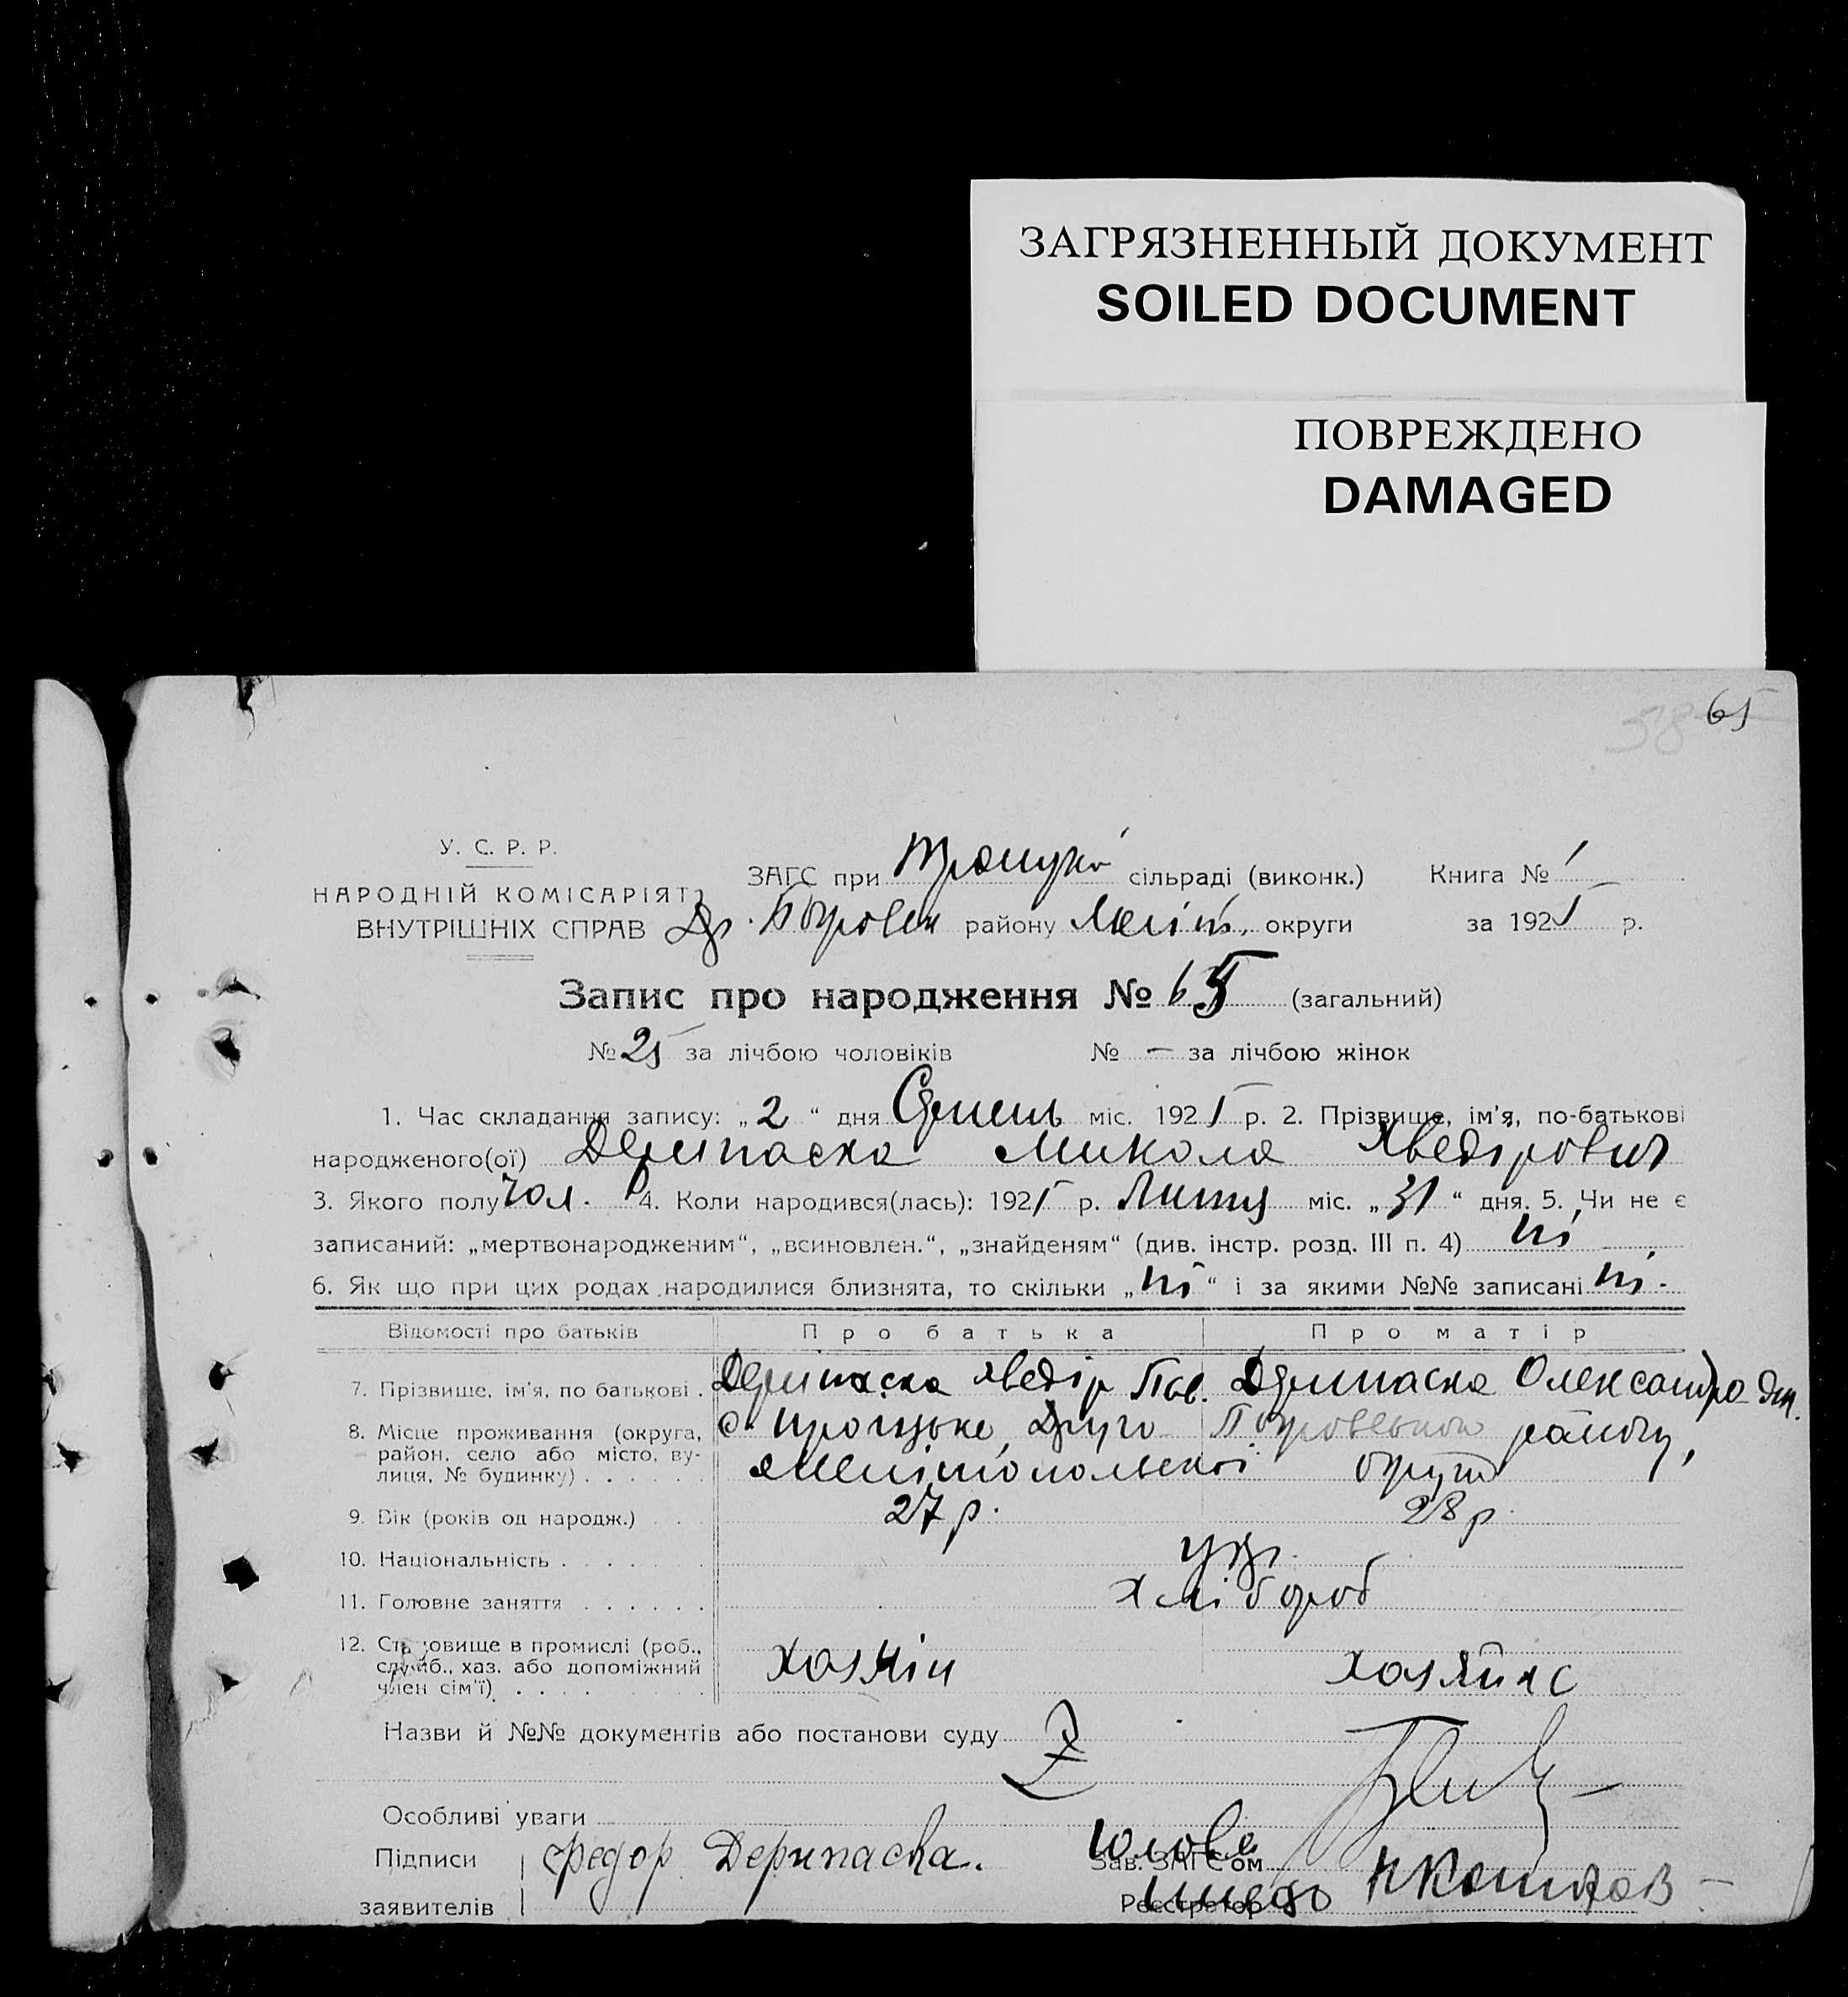 ЗАГРЯЗНЕННЫЙ ДОКУМЕНТ
SOILED DOCUMENT
ПОВРЕЖДЕНО
DAMAGED
58 65
У. С. Р. Р.
НАРОДНІЙ КОМІСАРІЯТ
ВНУТРІШНІХ СПРАВ
ЗАГС при сільраді (виконк.) Книга № 1
району Меліт. округи за 1925 р.
Запис про народження № 65 (загальний)
№ 25 за лічбою чоловіків № — за лічбою жінок
1. Час складання запису: „2“ дня міс. 1925 р. 2. Прізвище, ім'я, по-батькові
народженого(ої) Дерипаска Микола Хведірович
3. Якого полу чол. 4. Коли народився(лась): 1925 р. міс. „31“ дня. 5. Чи не є
записаний: „мертвонародженим“, „всиновлен.“, „знайденям“ (див. інстр. розд. III п. 4) ні
6. Як що при цих родах народилися близнята, то скільки „ні“ і за якими №№ записані ні.
Відомості про батьків Про батька Про матір
7. Прізвище, ім'я, по батькові . Дерипаска Хведір Пав. Дерипаска Олександра
8. Місце проживання (округа,
район, село або місто, ву-
лиця, № будинку) . . . . . .
с. Троцьке, Друго Покровського району,
Мелітопольскої округи
9. Вік (років од народж.) . . . 27 р. 28 р.
10. Національність . . . . . . . укр.
11. Головне заняття . . . . . . хлібороб
12. Становище в промислі (роб.,
служб., хаз. або допоміжний
член сім'ї) . . . .
хозяїн хозяйка
Назви й №№ документів або постанови суду
Особливі уваги
Підписи
заявителів
Федор Дерипаска.
Голова
Зав. ЗАГС'ом
Реєстратор